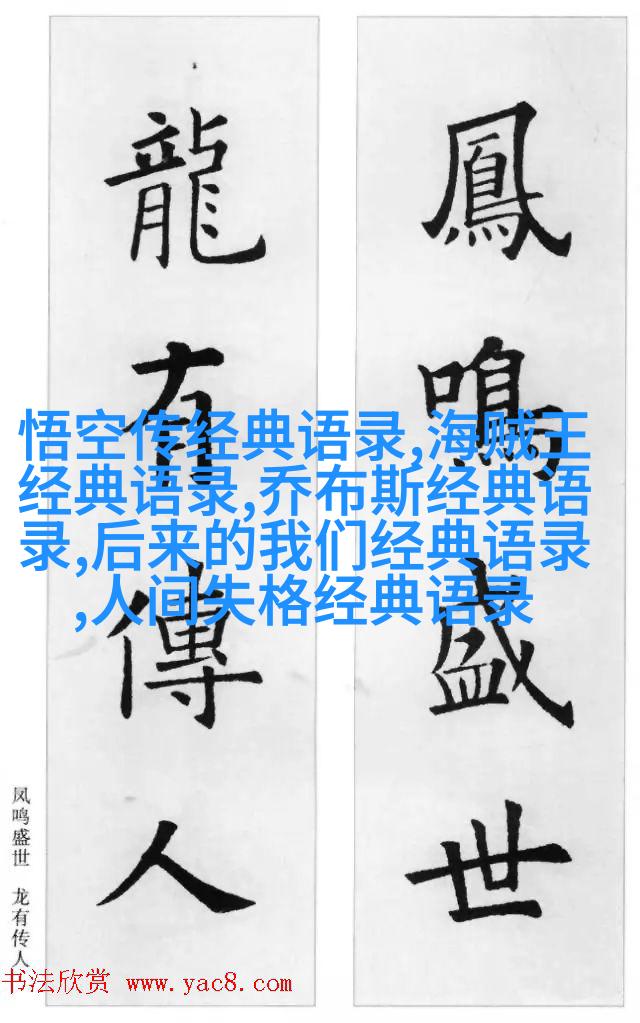 鳳鳴盛世
龍有傳人
悟空传经典语录,海贼王
经典语录,乔布斯经典语
录,后来的我们经典语录
,人间失格经典语录
凤鸣盛世 龙有传人
书法欣赏 www.yac8.com